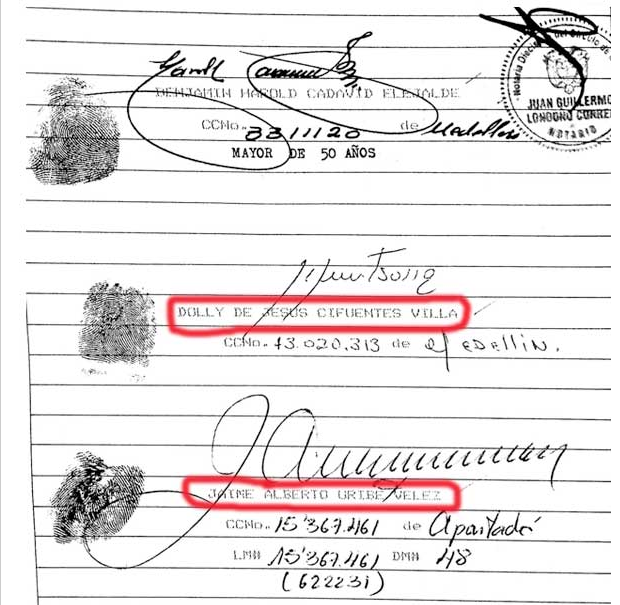 Notaria Diecio del Circulo de
JUAN GUILLERMO
LONDOÑO CORRE
NOTARIO
BENJAMIN HAROLD CADAVID ELEJALDE
CCNo. 3311120 de Medellin
MAYOR DE 50 AÑOS
DOLLY DE JESUS CIFUENTES VILLA
CCNo. 43.020.313 de MEDELLIN.
JAIME ALBERTO URIBE VELEZ
CCNo. 15'367.461 de Apartadó
LM# 15'367.461 DM# 48
(622231)